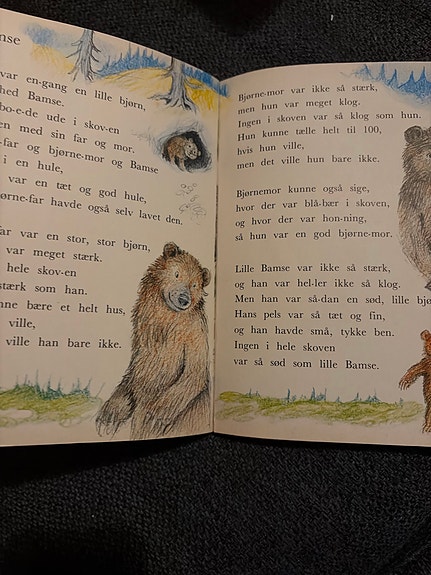 mse
var en-gang en lille bjørn,
hed Bamse.
bo-e-de ude i skov-en
en med sin far og mor.
-far og bjørne-mor og Bamse
i en hule,
var en tæt og god hule,
ørne-far havde også selv lavet den.
far var en stor, stor bjørn,
var meget stærk.
hele skov-en
stærk som han.
nne bære et helt hus,
ville,
ville han bare ikke.
Bjørne-mor var ikke så stærk,
men hun var meget klog.
Ingen i skoven var så klog som hun.
Hun kunne tælle helt til 100,
hvis hun ville,
men det ville hun bare ikke.
Bjørnemor kunne også sige,
hvor der var blå-bær i skoven,
og hvor der var hon-ning,
så hun var en god bjørne-mor.
Lille Bamse var ikke så stærk,
og han var hel-ler ikke så klog.
Men han var så-dan en sød, lille bjø
Hans pels var så tæt og fin,
og han havde små, tykke ben.
Ingen i hele skoven
var så sød som lille Bamse.